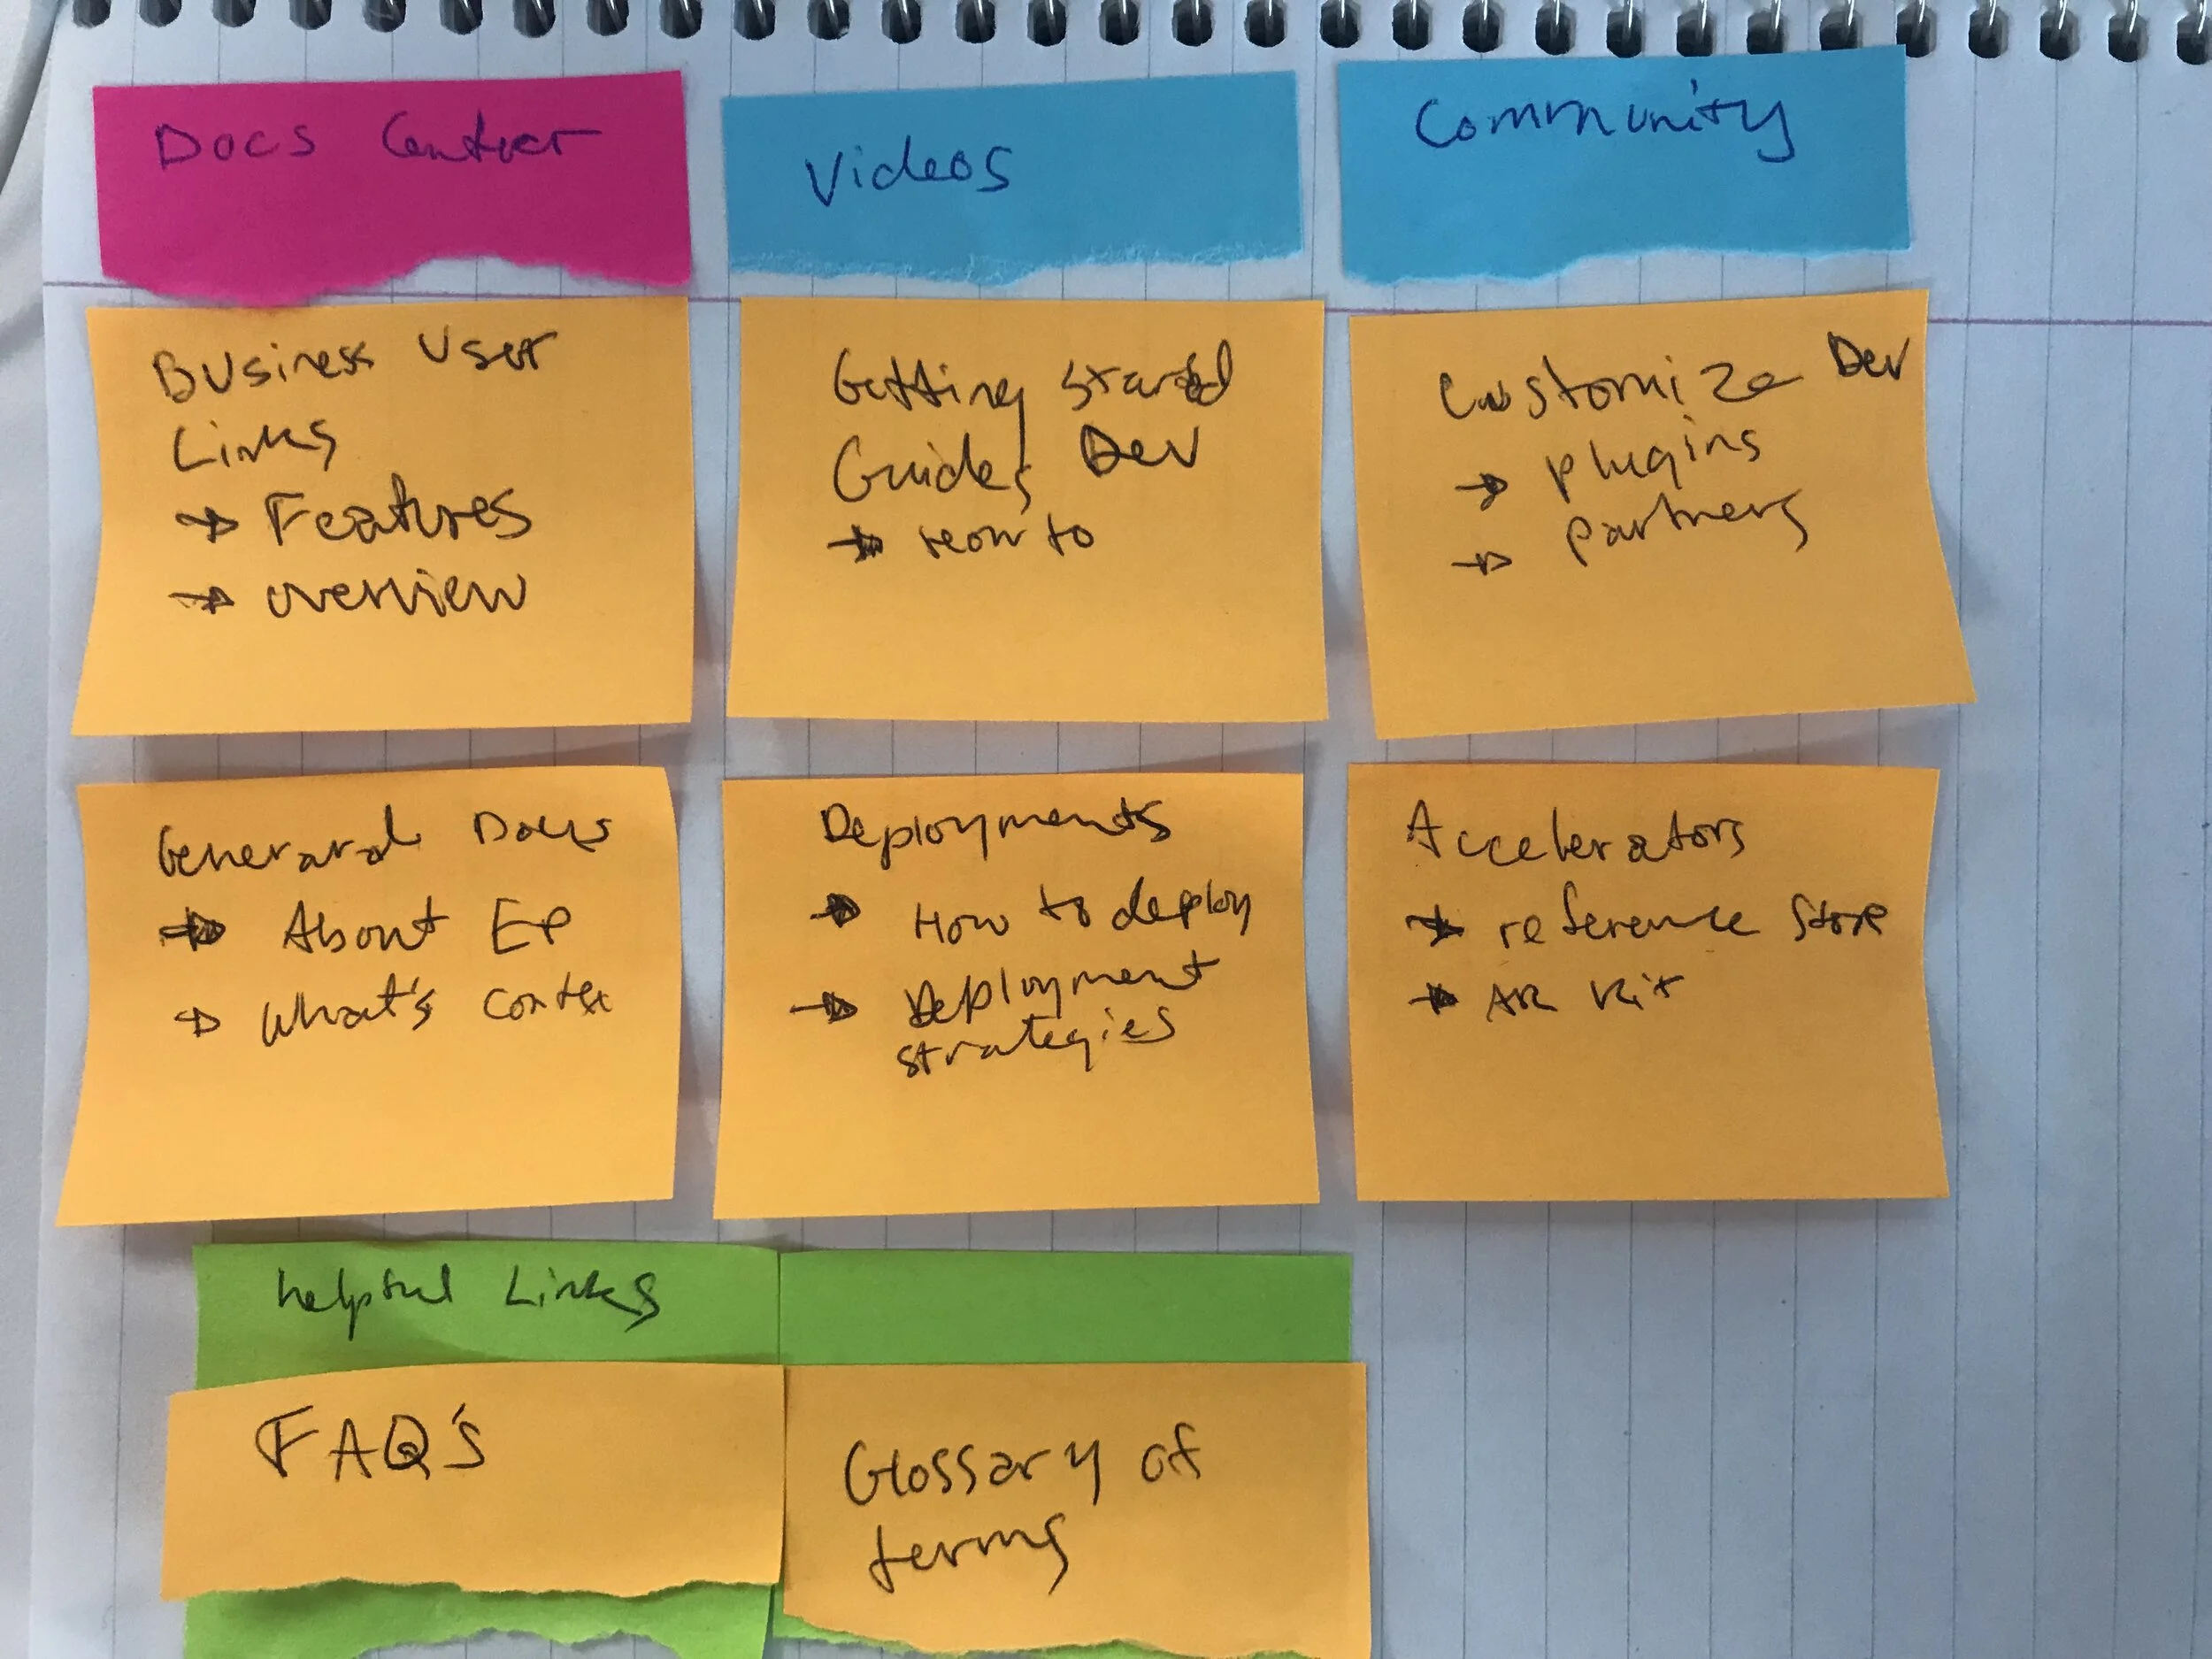 Docs Center
Videos
Community
Business User
Links
→ Features
→ overview
Getting Started
Guides Dev
→ How to
Customize Dev
→ plugins
→ partners
General Docs
→ About EP
→ What's
Deployments
→ How to deploy
→ Deployment
strategies
Accelerators
→ reference Store
→ AR Kit
helpful Links
FAQ's
Glossary of
terms